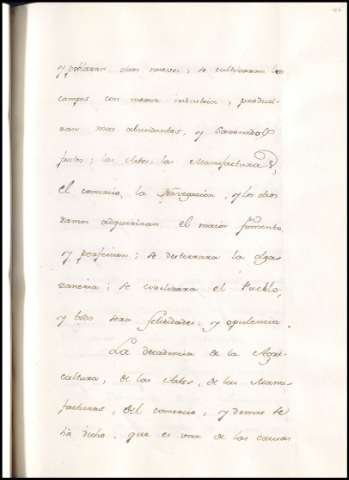 y poblaran otros nuevos; se cultivaran los
campos con nueva industria, produci-
ran mas abundantes, y sazonados
frutos; las Artes la Manufacturas,
el comercio, la Navegacion, y los otros
ramos adquiriran el maior fomento,
y perfeccion; se desterrara la olga-
zaneria; se civilizara el Pueblo,
y todo sera felicidades, y opulencia.
La decadencia de la Agri-
cultura, de las Artes, de las Manu-
facturas, del comercio, y demas se
ha dicho, que es una de las causas